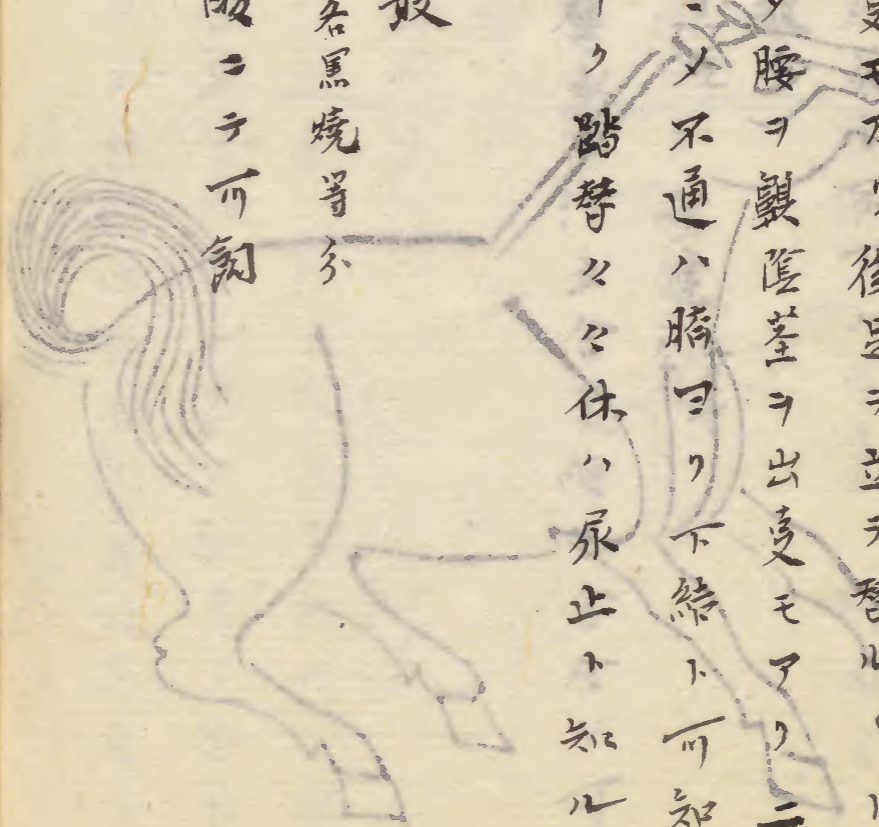 モ
後足ヲ立テ替ル
腰ヲ顫陰茎ヲ出叓モアリ二
メ不通ハ臍ヨリ下結ト可知
ク踏替々々休ハ尿止ト知ル
各黒焼等分
ニテ可飼